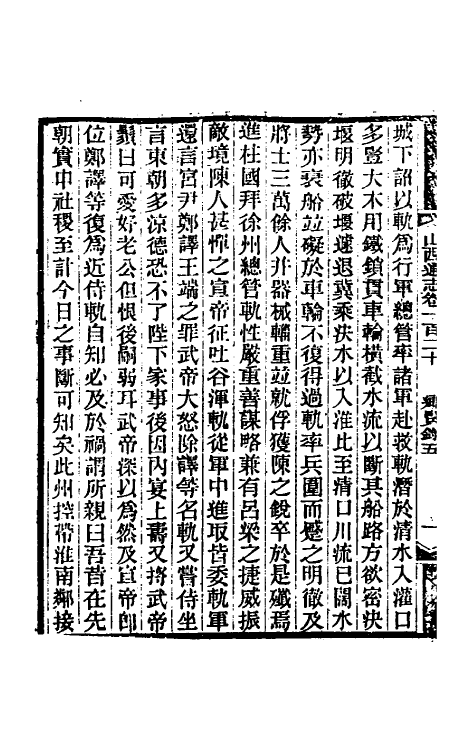 山西通志卷一百二十　鄉賢錄五　一
城下詔以軌為行軍總管率諸軍赴救軌潛於清水入灌口
多豎大木用鐵鎖貫車輪橫截水流以斷其船路方欲密決
堰明徹破堰遽退冀乘決水以入淮比至清口川流已闊水
勢亦衰船並礙於車輪不復得過軌率兵圍而蹙之明徹及
將士三萬餘人并器械輜重並就俘獲陳之銳卒於是殲焉
進柱國拜徐州總管軌性嚴重善謀略兼有呂梁之捷威振
敵境陳人甚憚之宣帝征吐谷渾軌從軍中進取皆委軌軍
還言宮尹鄭譯王端之罪武帝大怒除譯等名軌又嘗侍坐
言東朝多涼德恐不了陛下家事後因內宴上壽又捋武帝
鬚曰可愛好老公但恨後嗣弱耳武帝深以為然及宣帝即
位鄭譯等復為近侍軌自知必及於禍謂所親曰吾昔在先
朝實申社稷至計今日之事斷可知矣此州控帶淮南鄰接